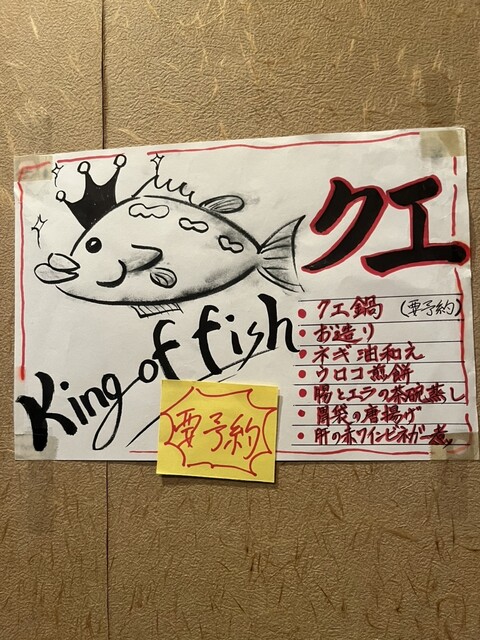 クエ
King of fish
・クエ鍋 (要予約)
・お造り
・ネギ油和え
・ウロコ煎餅
・腸とエラの茶碗蒸し
・胃袋の唐揚げ
・肝の赤ワインビネガー煮
要予約